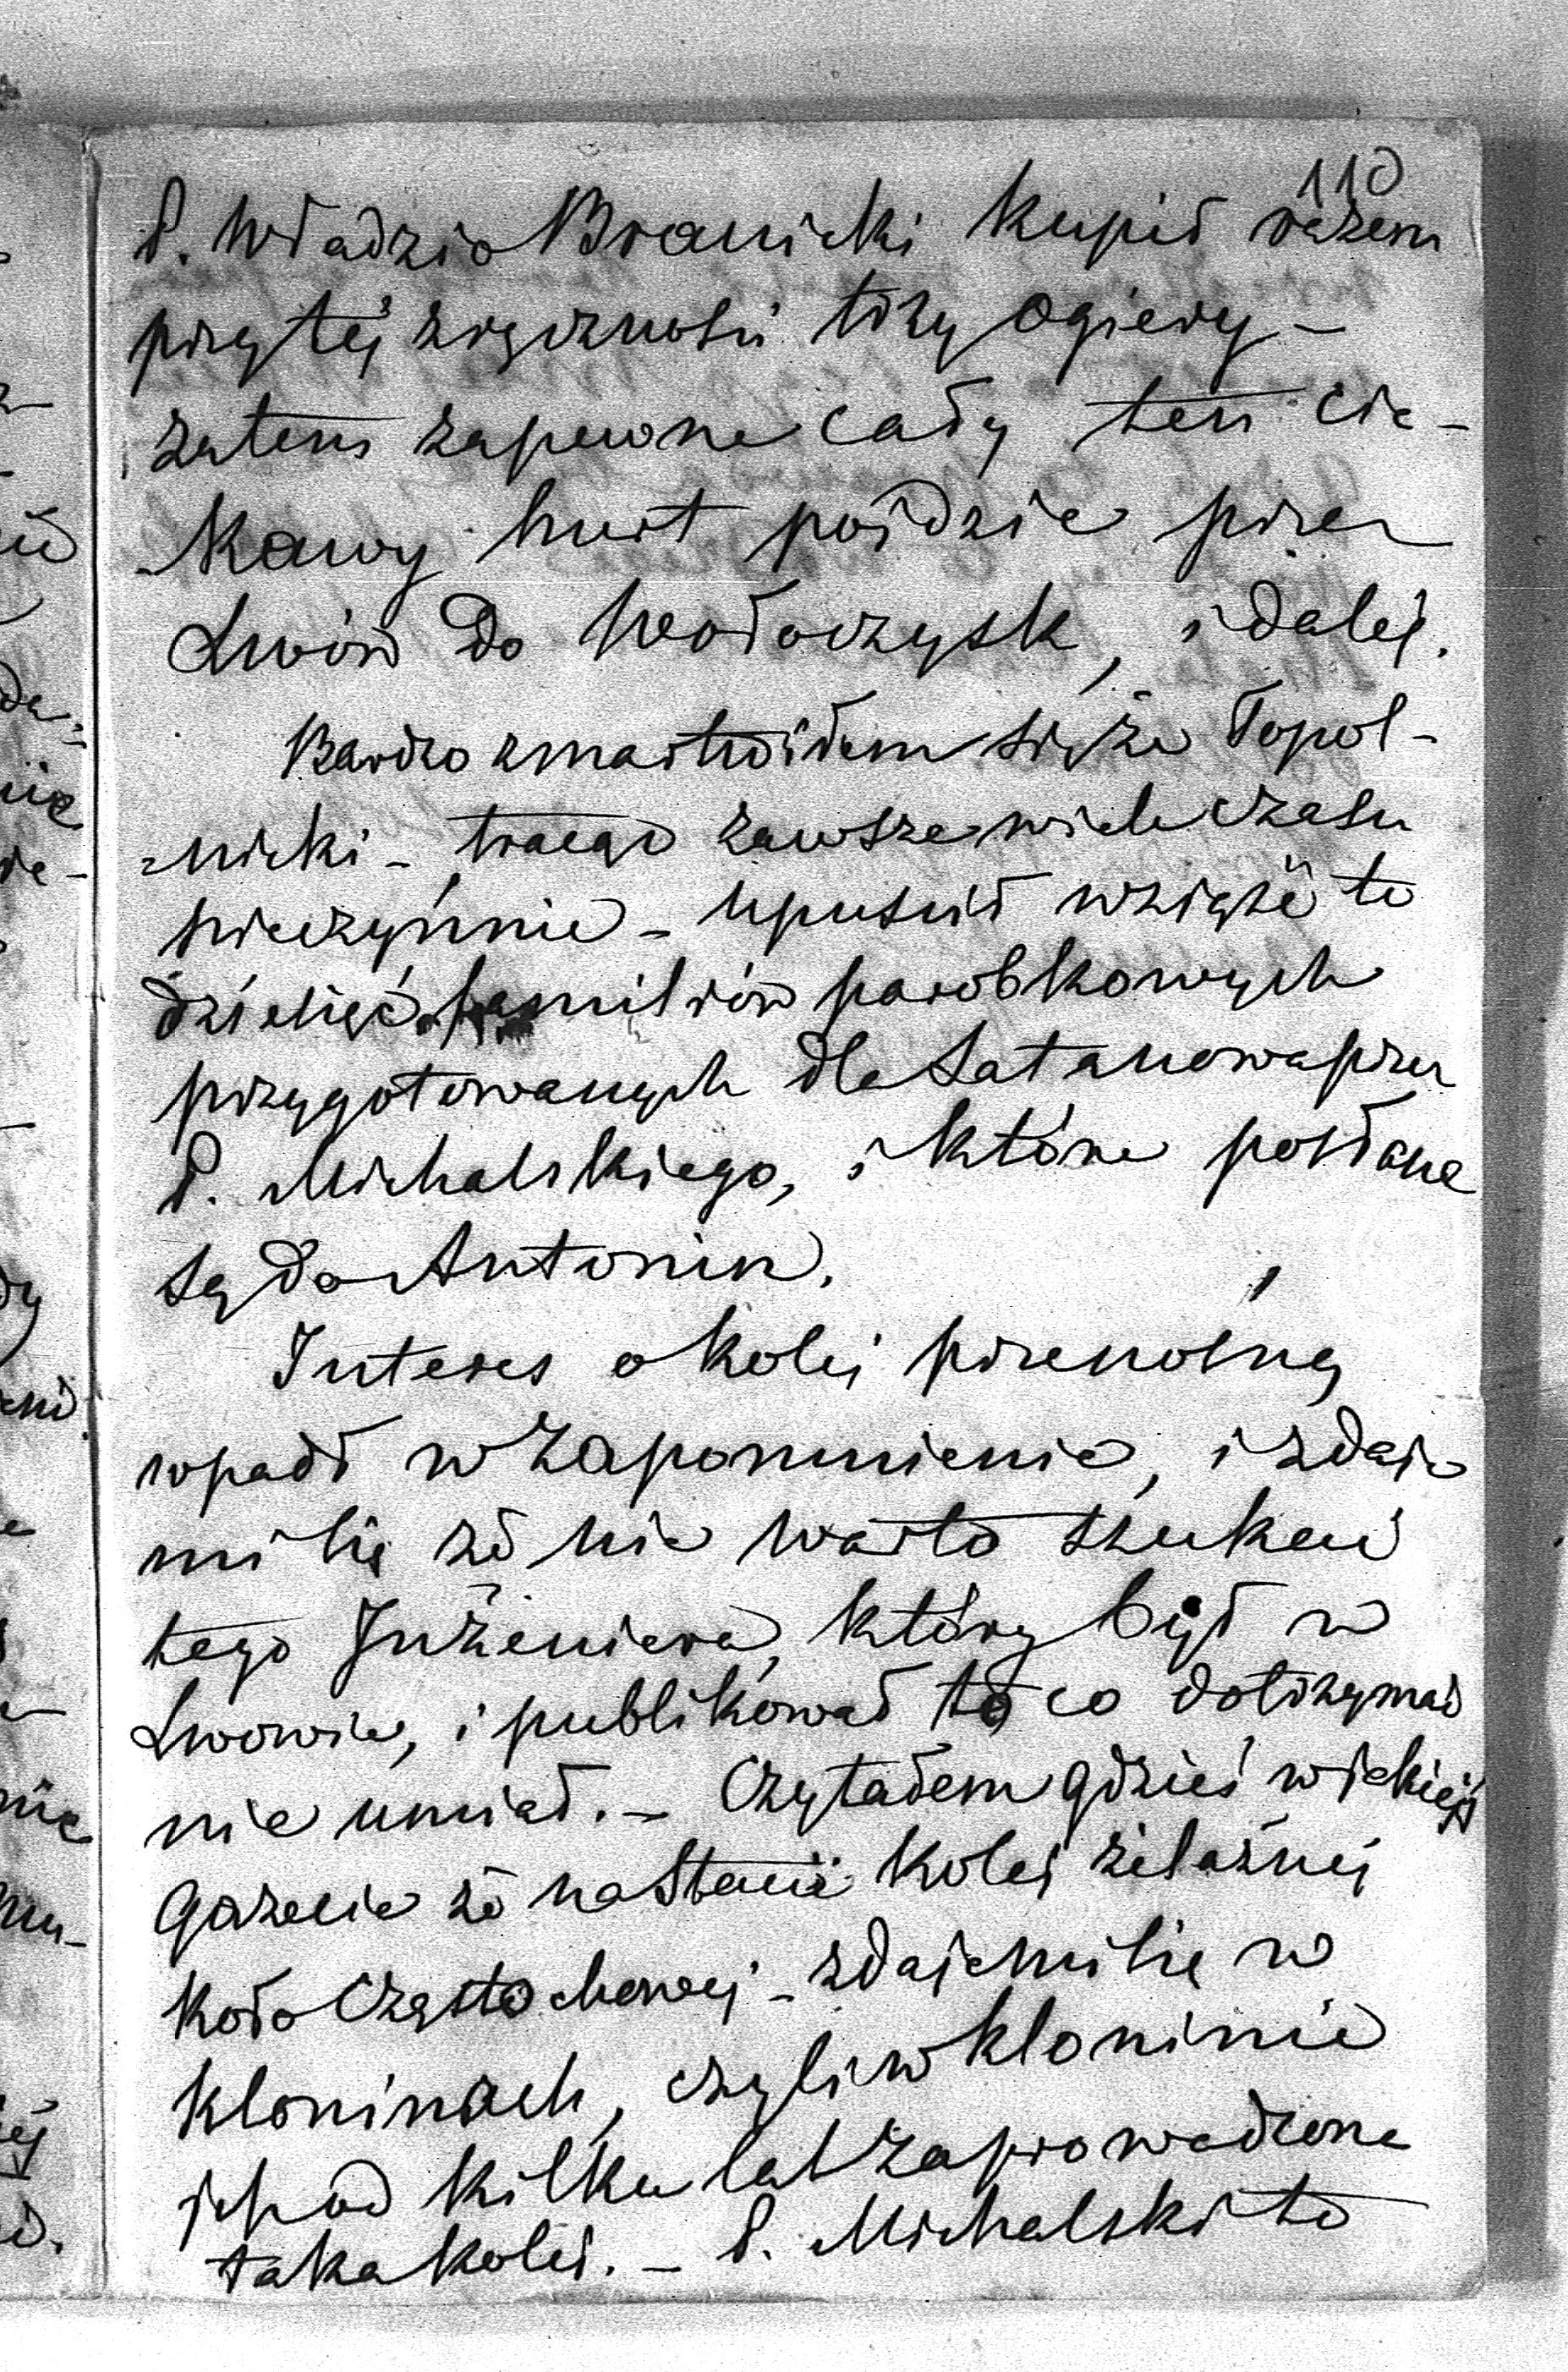 110
P. Władzio Branicki kupił razem
przy téj zręczności trzy ogiery –
zatem zapewne cały ten cie-
-kawy hurt pojdzie przez
Lwów do Wołoczysk, i daléj.
Bardzo zmartwiłem się że Topol-
-nicki – tracąc zawsze wiele czasu
nieczynnie – upuścił wziąść te
dziesięć familiów parobkowych
przygotowanych dla Satanowa przez
P. Michalskiego, i które posłane
są do Antonin.
Interes o koléj przenośną
wpadł w zapomnienie, i zdaje
mi się że nie warto szukać
tego Inżeniera, który był w
Lwowie, i publikował to co dotrzymać
nie umiał. – Czytałem gdzieś w jakiejś
gazecie że na Stacii kolei żelaznéj
koło Częstochowej – zdaje mi się w
Kloninach, czyli w Kloninie
jest od kilku lat zaprowadzona
taka koléj. – P. Michalski to